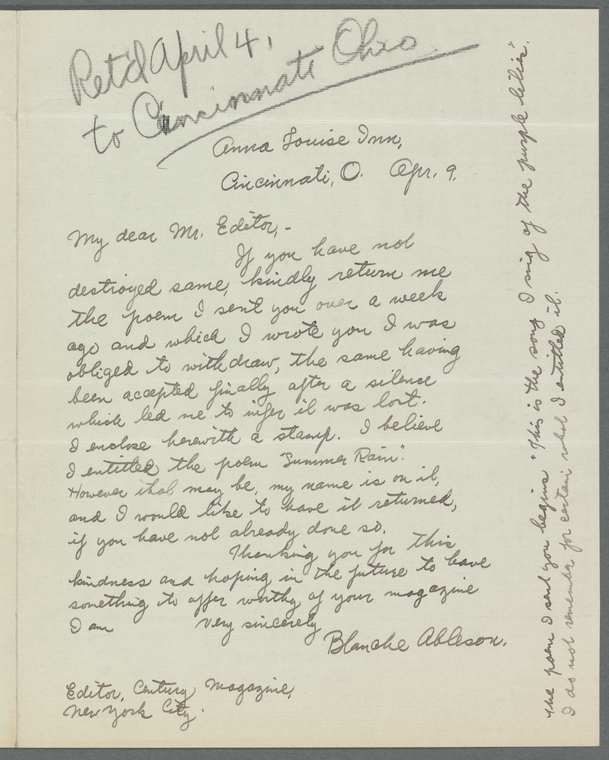 Ret'd April 4,
to Cincinnati Ohio
Anna Louise Inn,
Cincinnati, O. Apr. 9.
My dear Mr. Editor,-
If you have not
destroyed same, kindly return me
the poem I sent you over a week
ago and which I wrote you I was
obliged to withdraw, the same having
been accepted finally after a silence
which led me to infer it was lost.
I enclose herewith a stamp. I believe
I entitled the poem "Summer Rain".
However that may be, my name is on it,
and I would like to have it returned,
if you have not already done so.
Thanking you for this
kindness and hoping in the future to have
something to offer worthy of your magazine
I am very sincerely
Blanche Ableson.
Editor, Century Magazine,
New York City.
The poem I sent you begins "This is the song I sing of the purple lilies".
I do not remember for certain what I entitled it.